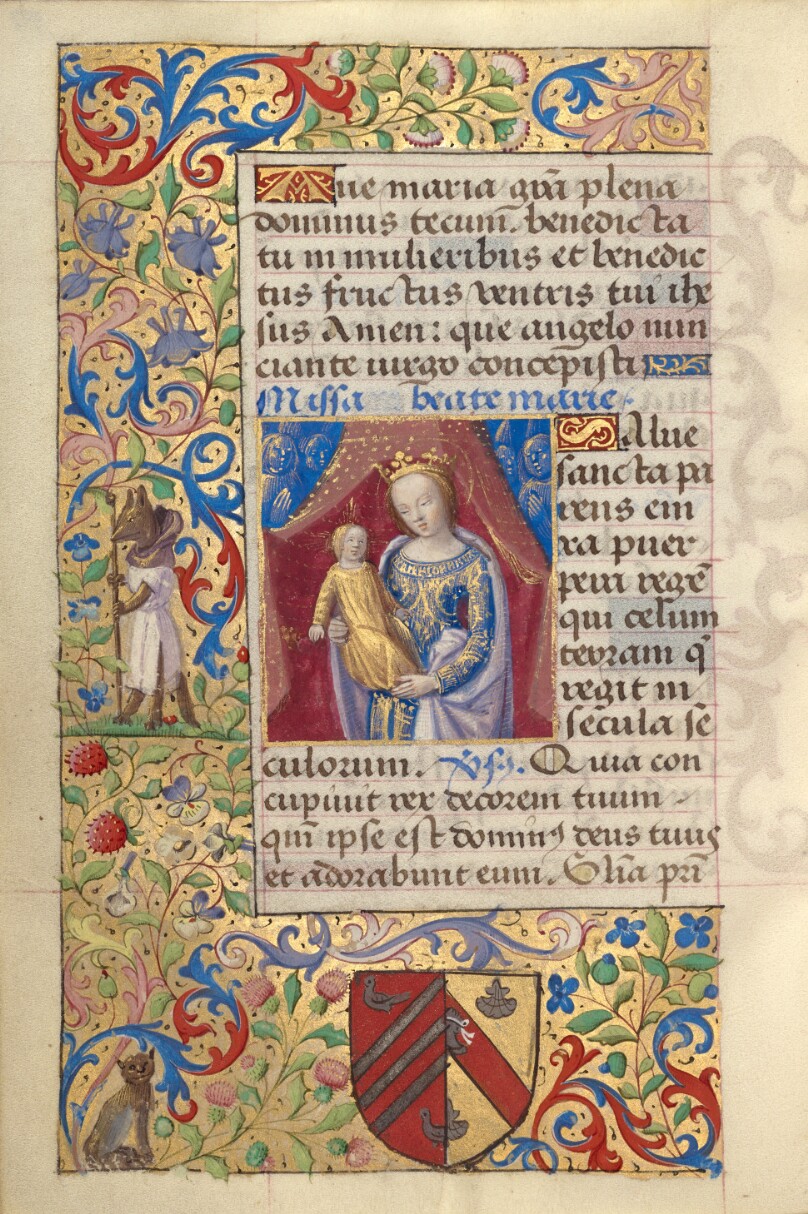 Aue maria gr̃a plena
dominus tecum. benedicta
tu in mulieribus et benedic
tus fructus ventris tui ihe
sus Amen: que angelo nun
ciante uirgo concepisti
Missa beate marie.
Salue
sancta pa
rens eni
xa puer
pera regē
qui celum
terram q̃
regit in
secula se
culorum. Ps. Quia con
cupiuit rex decorem tuum
qm̄ ipse est dominꝰ deus tuus
et adorabunt eum. Gl̃ia pr̃i